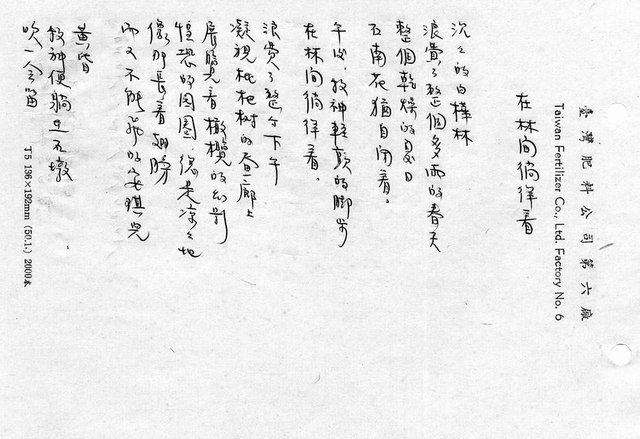 臺灣肥料公司第六廠
Taiwan Fertilizer Co., Ltd. Factory No. 6
在林間徜徉著
沉沉的白樺林
浪費了整個多雨的春天
整個乾燥的夏日
石南花猶自開着。
午後，牧神輕顫的腳步
在林間徜徉着。
浪費了整個下午
凝視枇杷树的音廊上
展覽着橄欖的幻別
惶恐的困圍，總是涼涼地
像那長着翅膀
而又不能飛的安琪兒
黃昏
牧神便躺在石墩
吹一会笛
T5 136×192mm (50.1.) 2000本